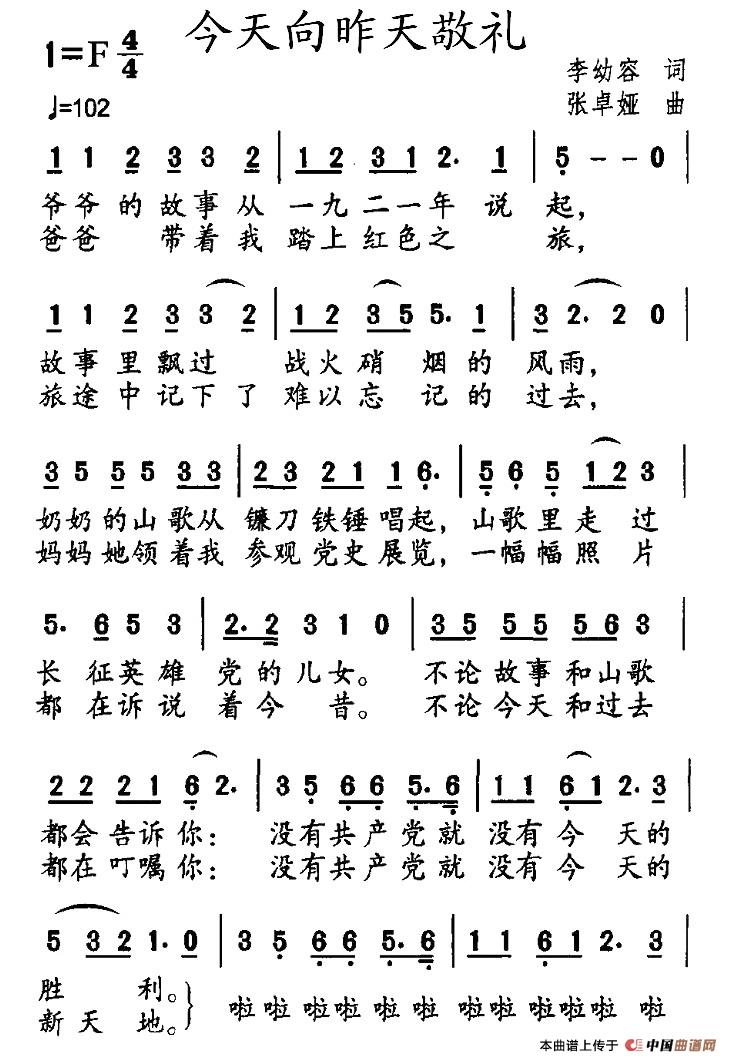 今天向昨天敬礼
1=F 4/4
♩=102
李幼容 词
张卓娅 曲
1 1 2 3 3 2 | 1 2 3 1 2. 1 | 5 - - 0
爷爷的故事从一九二一年说起，
爸爸 带着我踏上红色之 旅，
1 1 2 3 3 2 | 1 2 3 5 5. 1 | 3 2. 2 0
故事里飘过 战火硝烟的风雨，
旅途中记下了难以忘记的过去，
3 5 5 5 5 3 3 | 2 3 2 1 1 6. | 5 6 5 1 2 3
奶奶的山歌从镰刀铁锤唱起，山歌里走过
妈妈她领着我参观党史展览，一幅幅照片
5. 6 5 3 | 2. 2 3 1 0 | 3 5 5 5 5 6 3
长征英雄党的儿女。 不论故事和山歌
都在诉说着今昔。 不论今天和过去
2 2 2 1 6 2. | 3 5 6 6 5. 6 | 1 1 6 1 2. 3
都会告诉你：没有共产党就没有今天的
都在叮嘱你：没有共产党就没有今天的
5 3 2 1. 0 | 3 5 6 6 5. 6 | 1 1 6 1 2. 3
胜 利。
新天地。
啦啦啦啦啦啦 啦啦啦啦啦 啦
本曲谱上传于 中国曲谱网